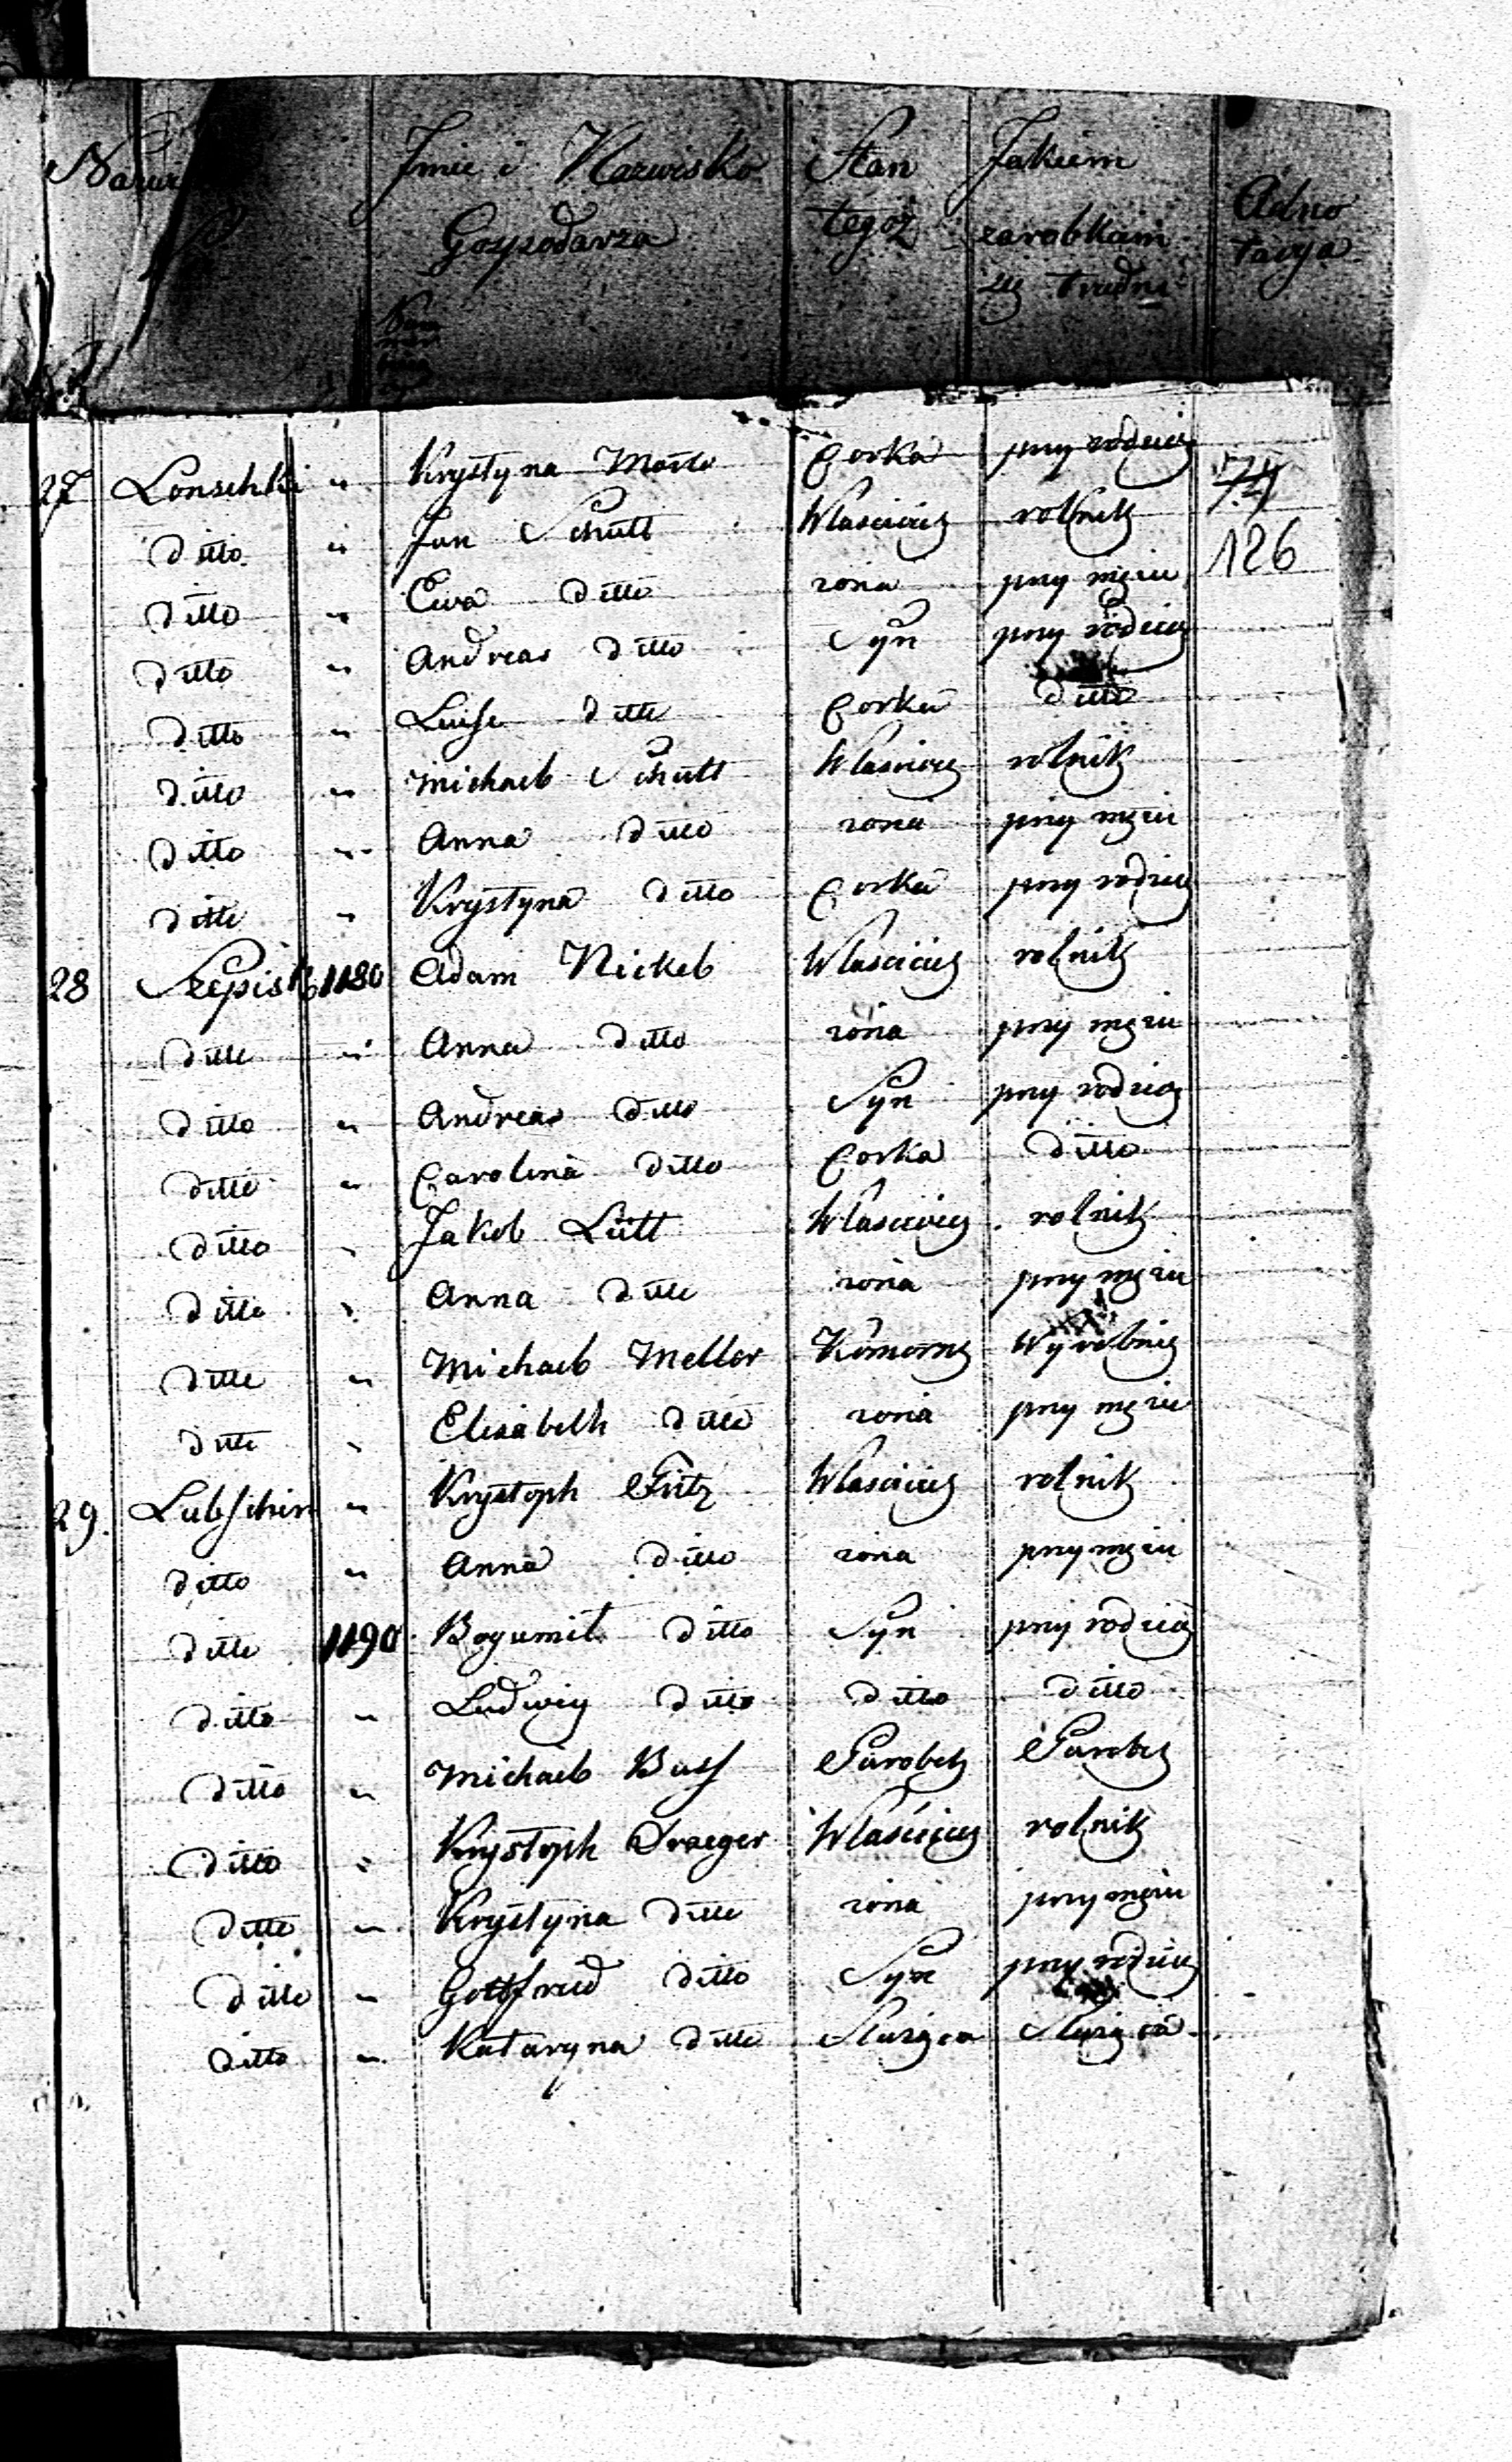 Imie i Nazwisko Gospodarza Stan tegoż Jakiem zarobkiem się trudni Adno tacya
27 Lonschki " Krystyna Corka przy rodzicz
ditto " Jan Schutt Wlasciciel rolnik 126
ditto " Ewa ditto zona przy mężu
ditto " Andreas ditto Syn przy rodzicz
ditto " Luise ditto Corka ditto
ditto " Michael Schutt Wlasciciel rolnik
ditto " Anna ditto zona przy mężu
ditto " Krystyna ditto Corka przy rodzicz
28 1180 Adam Nickel Wlasciciel rolnik
ditto " Anna ditto zona przy mężu
ditto " Andreas ditto Syn przy rodzicz
ditto " Carolina ditto Corka ditto
ditto " Jakob Lütt Wlasciciel rolnik
ditto " Anna ditto zona przy mężu
ditto " Michael Meller Komorny Wyrobnig
ditto " Elisabeth ditto zona przy mężu
29. Lubschin " Krystoph Fritz Wlasciciel rolnik
ditto " Anna ditto zona przy mężu
ditto 1190 Bogumil ditto Syn przy rodzicz
ditto " Ludwig ditto ditto ditto
ditto " Michael Buss Parobek Parobek
ditto " Krystoph Draeger Wlasciciel rolnik
ditto " Krystyna ditto zona przy mężu
ditto " Gottfried ditto Syn przy rodzicz
ditto " Kataryna ditto Służąca Służąca